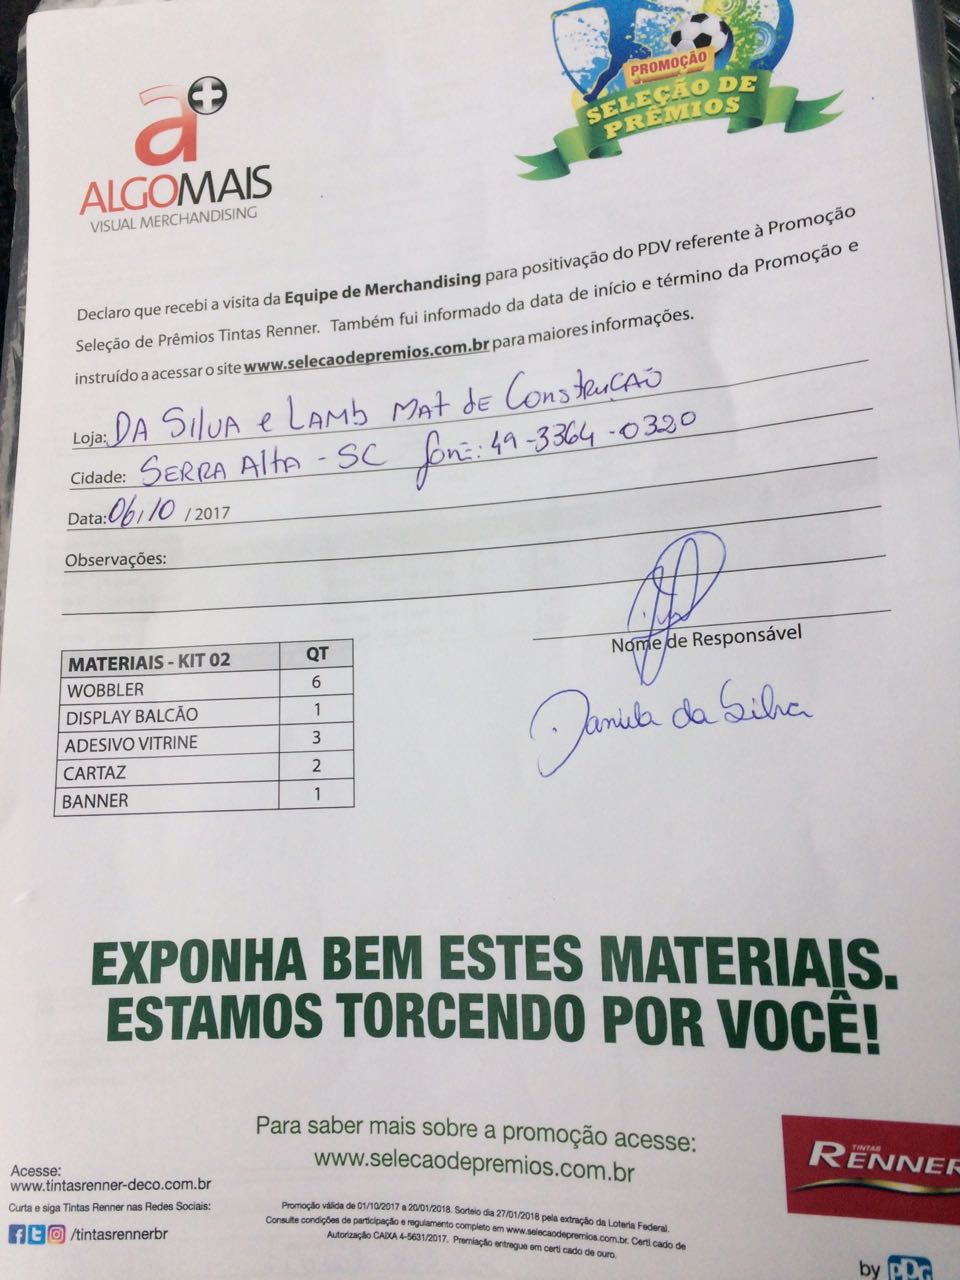 PROMOÇÃO
SELEÇÃO DE
PRÊMIOS
a+
ALGOMAIS
VISUAL MERCHANDISING
Declaro que recebi a visita da Equipe de Merchandising para positivação do PDV referente à Promoção
Seleção de Prêmios Tintas Renner. Também fui informado da data de início e término da Promoção e
instruído a acessar o site www.selecaodepremios.com.br para maiores informações.
Loja: DA SILVA e LAMB MAT de CONSTRUÇÃO
Cidade: SERRA ALTA - SC fone: 49-3364-0320
Data: 06/10 / 2017
Observações:
Nome de Responsável
Daniela da Silva
MATERIAIS - KIT 02 QT
WOBBLER 6
DISPLAY BALCÃO 1
ADESIVO VITRINE 3
CARTAZ 2
BANNER 1
EXPONHA BEM ESTES MATERIAIS.
ESTAMOS TORCENDO POR VOCÊ!
Para saber mais sobre a promoção acesse:
www.selecaodepremios.com.br
TINTAS
RENNER
Acesse:
www.tintasrenner-deco.com.br
Curta e siga Tintas Renner nas Redes Sociais:
/tintasrennerbr
Promoção válida de 01/10/2017 a 20/01/2018. Sorteio dia 27/01/2018 pela extração da Loteria Federal.
Consulte condições de participação e regulamento completo em www.selecaodepremios.com.br. Certi cado de
Autorização CAIXA 4-5631/2017. Premiação entregue em certi cado de ouro.
by PPG